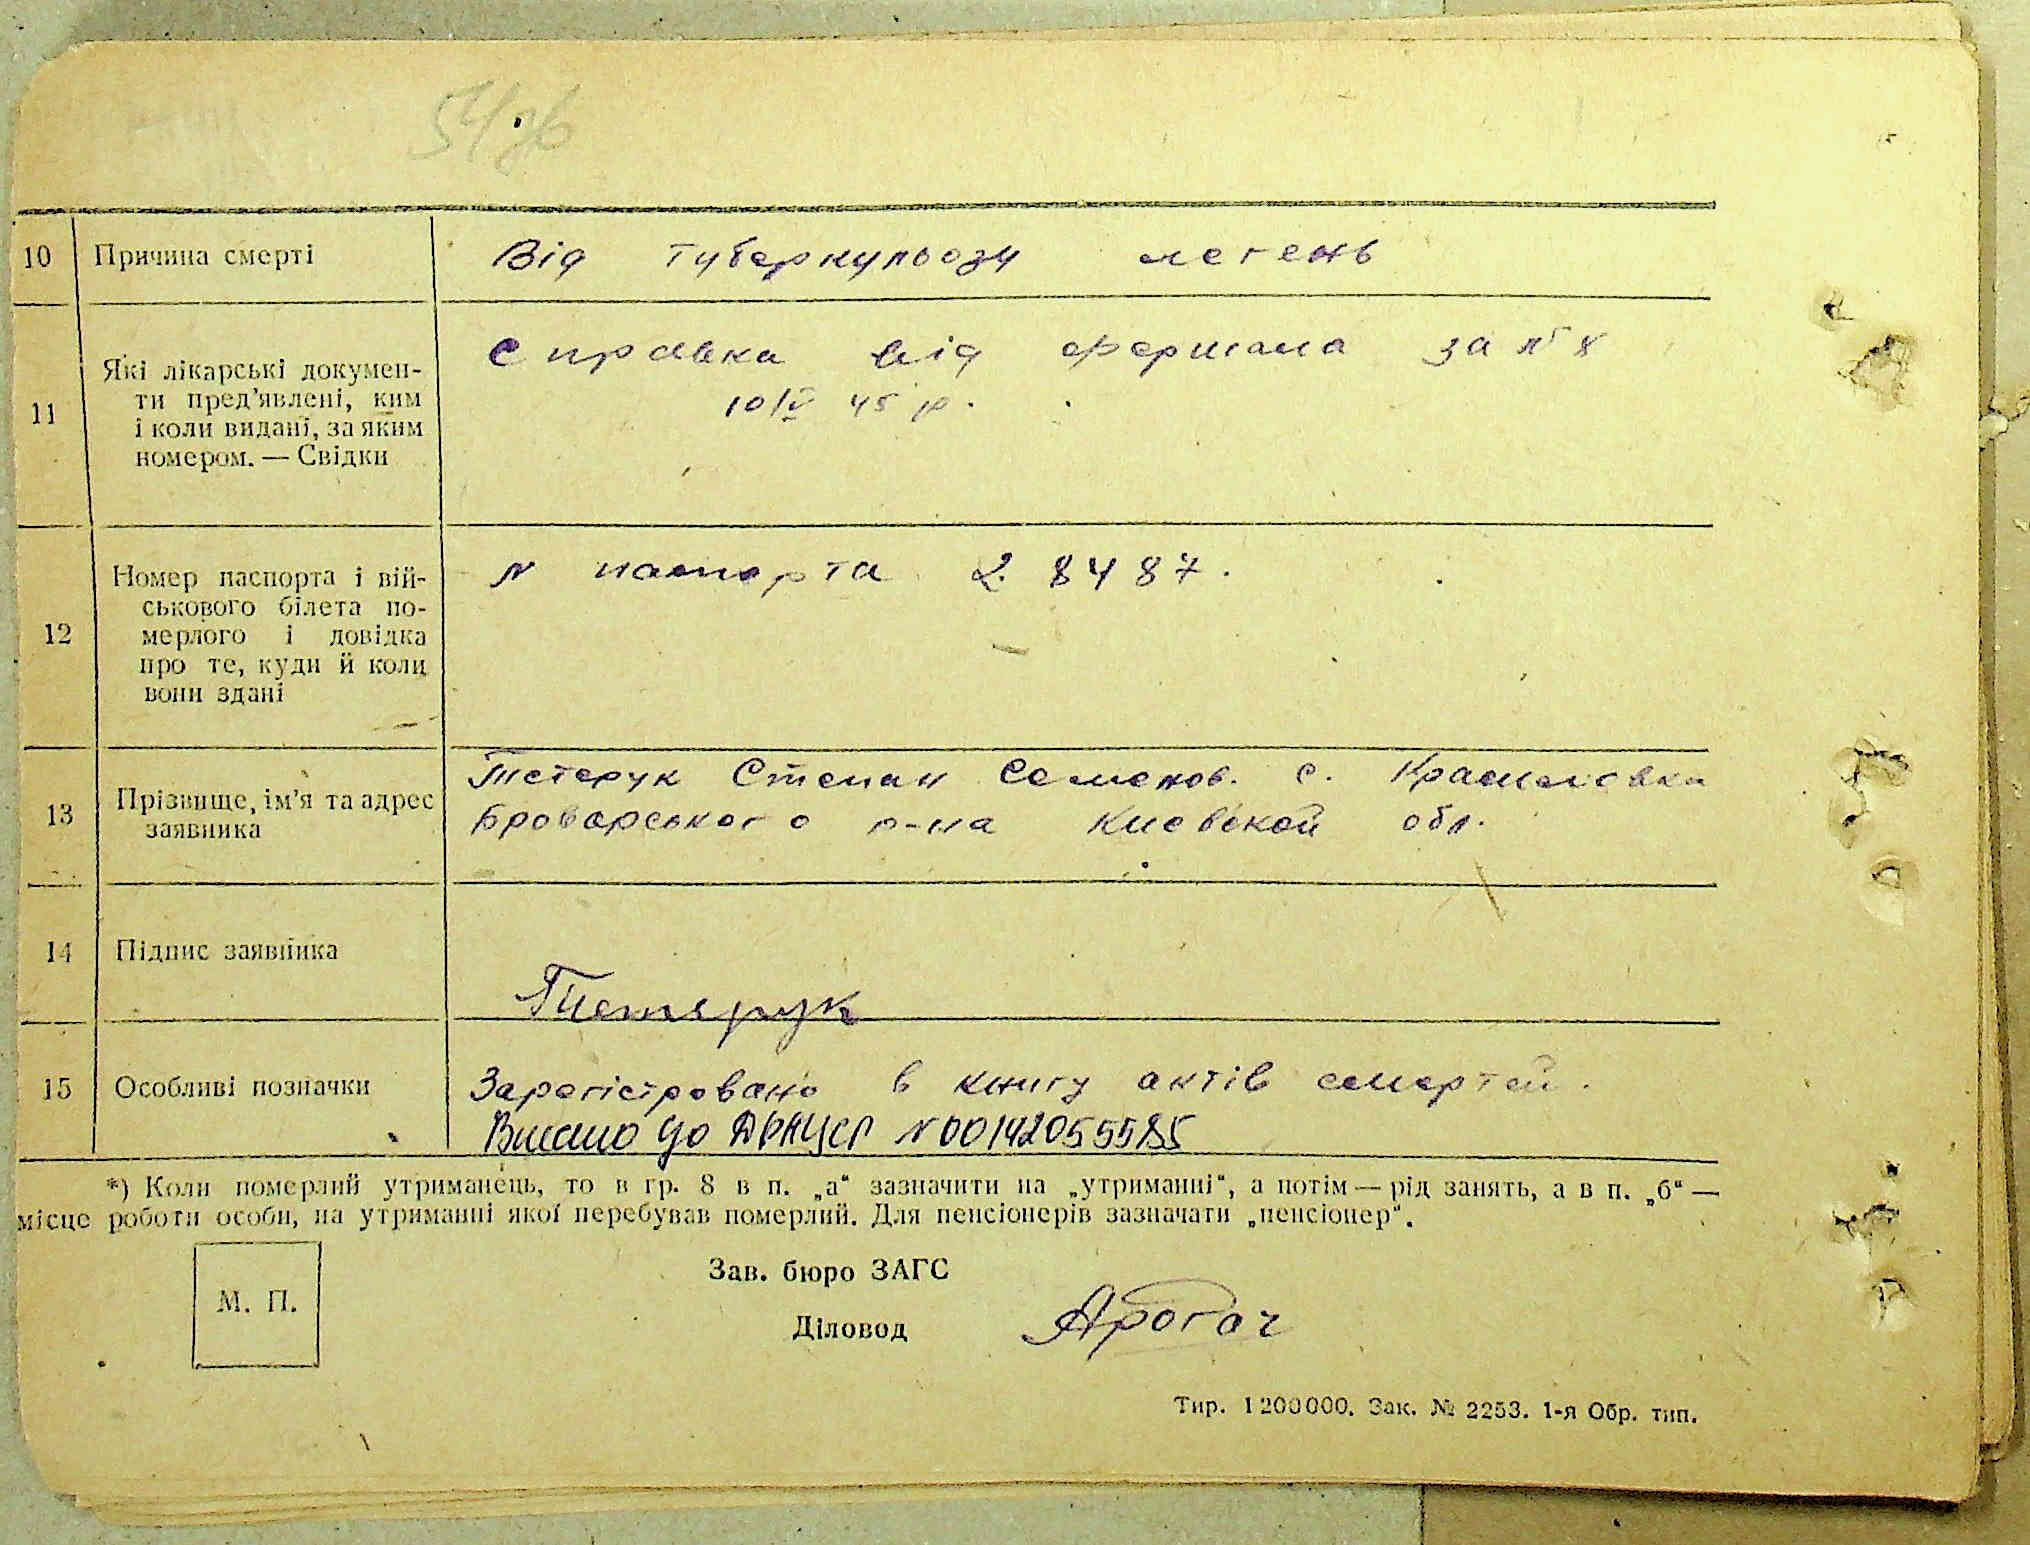 54 зв
10 Причина смерті Від туберкульозу легень
11 Які лікарські докумен-
ти пред’явлені, ким
і коли видані, за яким
номером. — Свідки
Справка від фершала за № 8
10/V 45 р.
12 Номер паспорта і вій-
ськового білета по-
мерлого і довідка
про те, куди й коли
вони здані
N паспорта 2. 8487.
13 Прізвище, ім’я та адрес
заявника
Тетерук Степан Семенов. с. Красиловка
Броварського р-на Киевской обл.
14 Підпис заявника
Тетерук
15 Особливі позначки Зарегістровано в книгу актів смертей.
Внесено до ДРАЦСГ N 00142055585
*) Коли померлий утриманець, то в гр. 8 в п. „а“ зазначити на „утриманні“, а потім — рід занять, а в п. „б“ —
місце роботи особи, на утриманні якої перебував померлий. Для пенсіонерів зазначати „пенсіонер“.
М. П.
Зав. бюро ЗАГС
Діловод
Тир. 1200000. Зак. № 2253. 1-я Обр. тип.